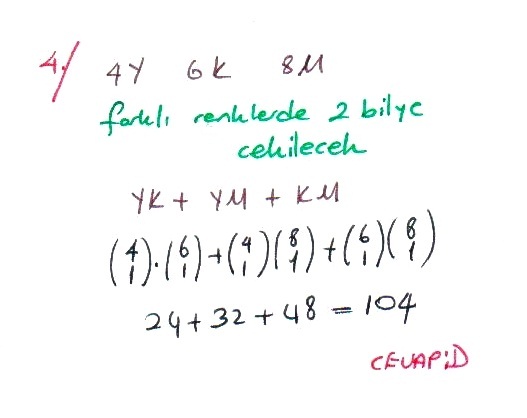 4/ 4Y 6K 8M
farklı renklerde 2 bilye
cekilecek
YK + YM + KM
(4 1).(6 1)+(4 1)(8 1)+(6 1)(8 1)
24+32+48=104
CEVAP:D